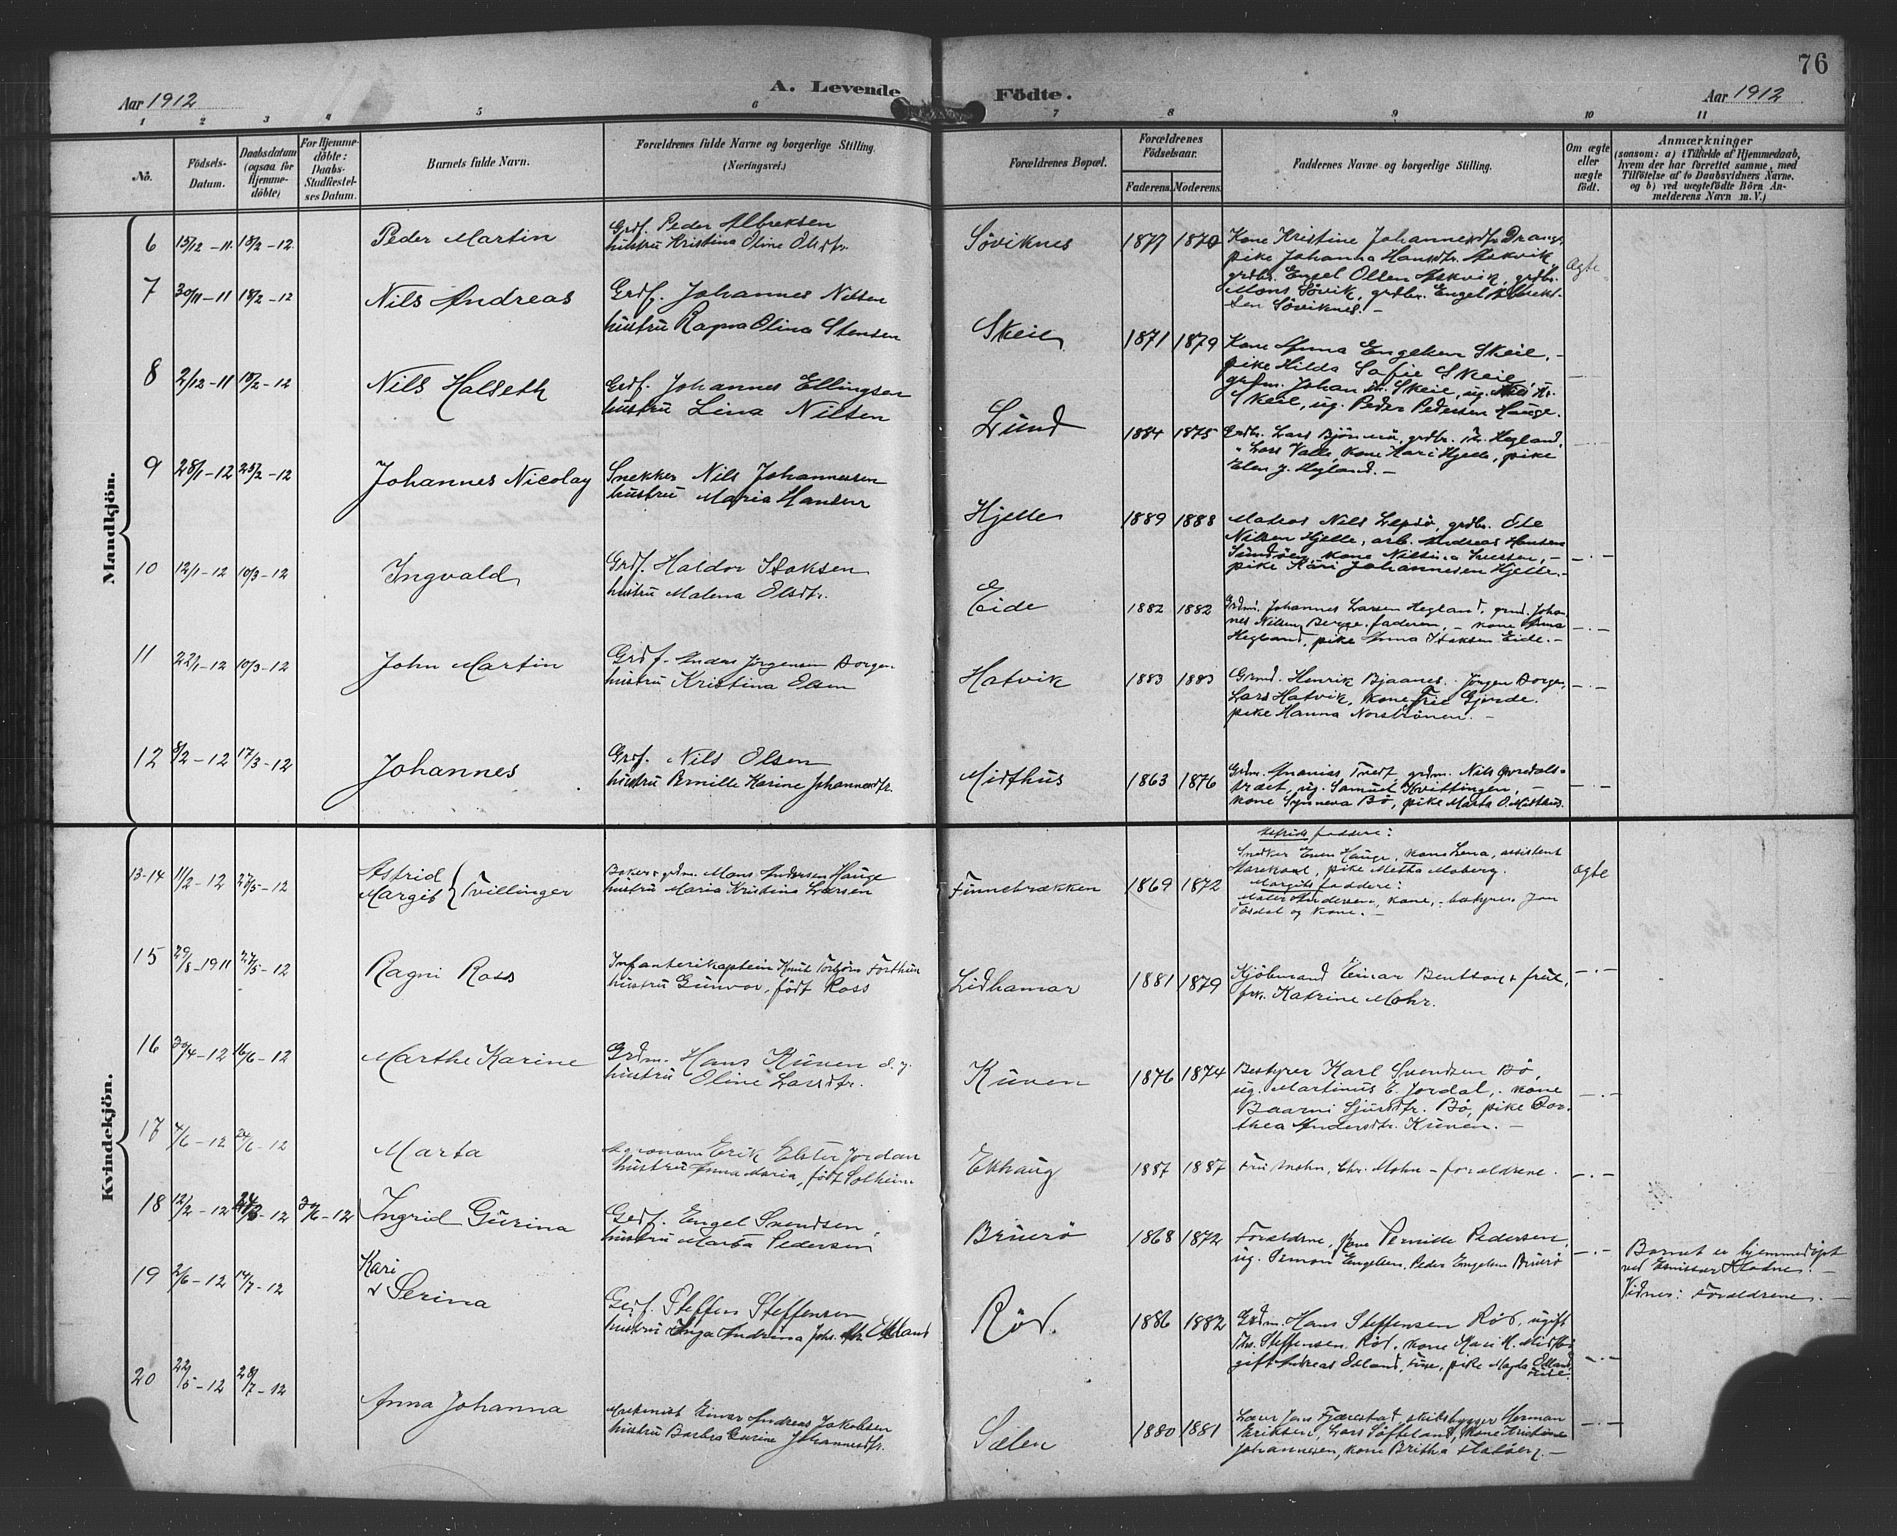 76
Aar 1912
A. Levende
Födte.
Aar 1912
1 2 3 4 5 6 7 8 9 10 11
No.
Födsels-Datum.
Daabsdatum (ogsaa for Hjemme-döbte)
For Hjemme-döbte: Daabs-Stadfæstel-ses Datum.
Barnets fulde Navn.
Forældrenes fulde Navne og borgerlige Stilling. (Næringsvei.)
Forældrenes Bopæl.
Forældrenes Födselsaar.
Faderens. Moderens.
Faddernes Navne og borgerlige Stilling.
Om ægte eller uægte födt.
Anmærkninger
(saasom: a) i Tilfælde af Hjemmedaab, hvem der har forrettet samme, med Tilföielse af to Daabsvidners Navne. og b) ved uægtefödte Börn An-melderens Navn m. V.)
Mandkjön.
6 15/12-11 18/2-12 Peder Martin
Grdf. Peder Albreksen
hustru Kristina Oline Olsdtr.
Søviknes 1877 1870
Kone Kristine Johannesdtr Drange
pike Johanna Hansdtr. Askvik
grdbr. Engel Olsen Askvik, grdbr.
Mons Søvik, grdbr. Engel Albrekt-
sen Søviknes.-
Ægte
7 30/11-11 18/2-12 Nils Andreas
Grdf. Johannes Nilsen
hustru Ragna Olina Stensen
Skeie 1871 1879
Kone Anna Engelsen Skeie,-
pike Hilda Sofie Skeie
grdm. Johan Skeie, ug. Nils
Skeie, ug. Peder Pedersen Hauge.
8 2/12-11 18/2-12 Nils Halseth
Grdf. Johannes Ellingsen
hustru Lina Nilsen
Lund 1884 1875
Grdbr. Lars Bjönnes, grdbr. Hegland,
" Lars Valle, kone Kari Hjelle, pike
Elen J. Hegland.-
9 28/1-12 25/2-12 Johannes Nicolay
Snekker Nils Johannessen
hustru Maria Hansen
Hjelle 1889 1888
Matros Nils Lepsö, grdbr. Ole
Nilsen Hjelle, arb. Andreas Hansen
Sundöen, kone Nilsina
pike Kari Johannessen Hjelle.
-.-
10 12/1-12 10/3-12 Ingvald
Grdf. Haldor Isaksen
hustru Malena Olsdtr.
Eide 1882 1882
Grdm. Johannes Larsen Hegland, grdm. Johan-
nes Nilsen Berge, faderen, - kone Anna
Hegland, pike Anna Isaksen Eide.-
-.-
11 22/1-12 10/3-12 John Martin
Grdf. Anders Jörgensen Borgen
hustru Kristina Olsen
Hatvik 1883 1883
Grmd. Henrik Bjaanes. Jörgen Borgen,
Lars Hatvik, kone Gjerde.
pike Hanna Norströnen.-
-.-
12 8/2-12 17/3-12 Johannes
Grdf. Nils Olsen
hustru Pernille Karine Johannesdtr.
Midthus 1863 1876
Grdm. Ananias Tvedt, grdm. Nils Øvredals-
træet, ug. Samuel Kvittingen,-
kone Synneva Bö, pike Marta O. Midthus.
-.-
Kvindekjön.
13-14 11/2-12 27/5-12 Astrid
Margit } Tvillinger
Baker & grdm. Mons Andersen Hauge
hustru Maria Kristina Larsen
Tunnebrækken 1869 1872
Astrids faddere:
Snedker Even Hauge, kone Lena, assistent
pike Metha Moberg.
Margits faddere:
Andersen, kone,- bestyrer Jan
og kone.-
Ægte
15 29/8-1911 27/5-12 Ragni Ross
Infanterikaptein Knut Torbjörn Forthun
hustru Gunvor, født Ross
Lidhamar 1881 1879
Kjöbmand Einar Bentzon & frue,
frk. Katrine Mohr.
-.-
16 30/4-12 16/6-12 Marthe Karine
Grdm. Hans Kuven d. y.
hustru Oline Larsdtr.
Kuven 1876 1874
Bestyrer Karl Svendsen Bö,
ug. Martinus E. Jordal, kone
Baarni Sjursdtr. Bö, pike Dor-
thea Andersdtr. Kuven.-
-.-
17 4/6-12 24/6-12 Marta
Agronom Erik Elster Jordan
hustru Anna Maria, født Solheim
Ekhaug 1887 1887
Fru Mohn, Chr. Mohn - forældrene.
-.-
18 12/2-12 -12 30/6-12 Ingrid Gurina
Grdf. Engel Svendsen
hustru Marta Pedersen
Bruarö 1868 1872
Forældrene, kone Pernille Pedersen,
ug. Simon Engelsen, Peder Engelsen Bruarö
-.-
Barnet er hjemmedöpt
ved Emissær Kladnes.-
Vidner: Forældrene.-
19 2/6-12 14/7-12 Kari
& Serina
Grdf. Steffen Steffensen
hustru Inga Andrina Johs. dtr. Ekland
Röd 1886 1882
Grdm. Hans Steffensen Röd, ugift
Ths. Steffensen Röd, kone Mari H. Midtbö
gift Andreas Ekland, Fuse, pike Magda Ekland,
Fuse.
-.-
20 22/5-12 28/7-12 Anna Johanna
Mekanist Einar Andreas Jakobsen
hustru Barbro Gurine Johannesdtr.
Sælen 1880 1881
Lærer Jens Fjærestad, skibsbygger Herman
Eriksen, Lars Söfteland, kone Kristine
Johannessen, kone Britha Hatöen.-
-.-